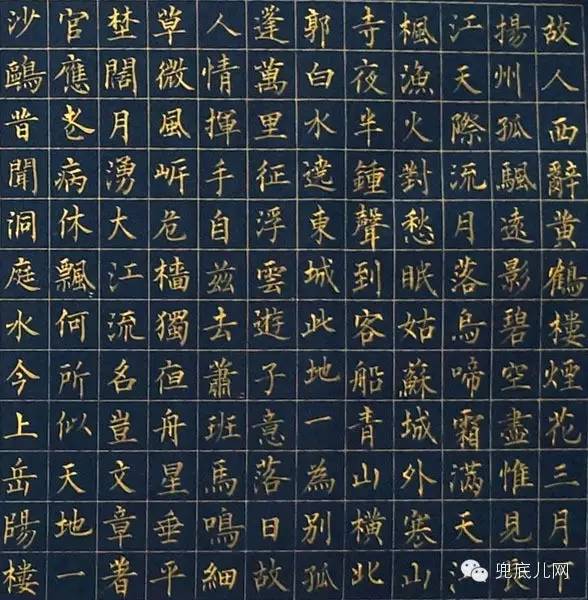 故人西辭黃鶴樓煙花三月
揚州孤颿遠影碧空盡惟見長
江天際流月落烏啼霜滿天江
楓漁火對愁眠姑蘇城外寒山
寺夜半鍾聲到客船青山橫北
郭白水遶東城此地一為別孤
蓬萬里征浮雲遊子意落日故
人情揮手自茲去蕭班馬鳴細
草微風岸危檣獨夜舟星垂平
埜闊月湧大江流名豈文章著
官應老病休飄何所似天地一
沙鷗昔聞洞庭水今上岳陽樓
兜底儿网